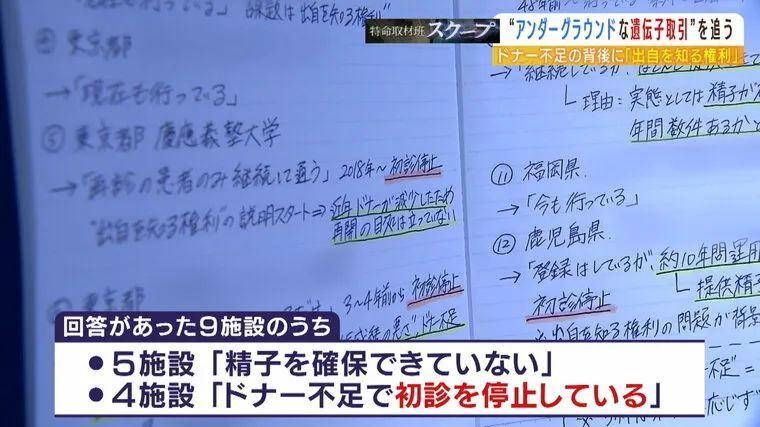 特命取材班 スクープ
"アンダーグラウンドな遺伝子取引"を追う
ドナー不足の背後に「出自を知る権利」
東京都
→「現在も行っている」
⑤ 東京都 慶應義塾大学
→「再診の患者のみ継続して通う」 2018年〜初診停止
"出自を知る権利"の説明スタート⇒近年ドナーが減少したため
再開の目処は立っていない
東京都
3〜4年前から 初診停止
ドナー不足
理由：実態としては精子が
年間数件あるかと
⑪ 福岡県
→「今も行っている」
⑫ 鹿児島県
→「登録はしているが、約10年間運用
提供精子
初診停止
出自を知る権利の問題が背景
回答があった9施設のうち
●5施設「精子を確保できていない」
●4施設「ドナー不足で初診を停止している」